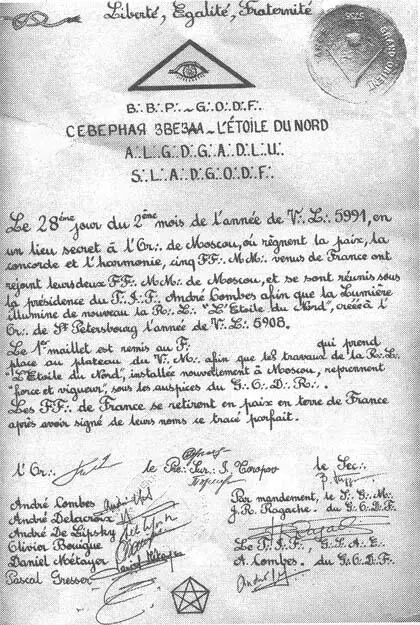 Liberté, Egalité, Fraternité
GRAND ORIENT
B∴B∴P∴~G∴O∴D∴F∴
СЕВЕРНАЯ ЗВЕЗДА~L'ÉTOILE DU NORD
A∴L∴G∴D∴G∴A∴D∴L∴U∴
S∴L∴A∴D∴G∴O∴D∴F∴
Le 28ème jour du 2ème mois de l'année de V∴L∴ 5991, en
un lieu secret à l'Or∴ de Moscou, où règnent la paix, la
concorde et l'harmonie, cinq FF∴MM∴ venus de France ont
rejoint leurs deux FF∴MM∴ de Moscou, et se sont réunis sous
la présidence du T∴I∴F∴ André Combes afin que la Lumière
illumine de nouveau la R∴L∴ "L'Etoile du Nord", créée à l'
Or∴ de St Petersbourg l'année de V∴L∴ 5908.
Le 1er maillet est remis au F∴ qui prend
place au plateau du V∴M∴ afin que les travaux de la R∴L∴
"L'Etoile du Nord", installée nouvellement à Moscou, reprennent
"force et vigueur", sous les auspices du G∴O∴D∴R∴.
Les FF∴ de France se retirent en paix en terre de France
après avoir signé de leurs noms ce tracé parfait.
l'Or∴ le Pre∴Sur∴ I. Toropov le Sec∴
André Combes
André Delacroix
André De Lipsky
Olivier Bouique
Daniel Moëtayer
Pascal Gresser
Par mandement, le S∴G∴M∴
J.R. Ragache∴ du G∴O∴D∴F∴
Le T∴I∴F∴, G∴S∴A∴E∴
A. Combes∴ du G∴O∴D∴F∴